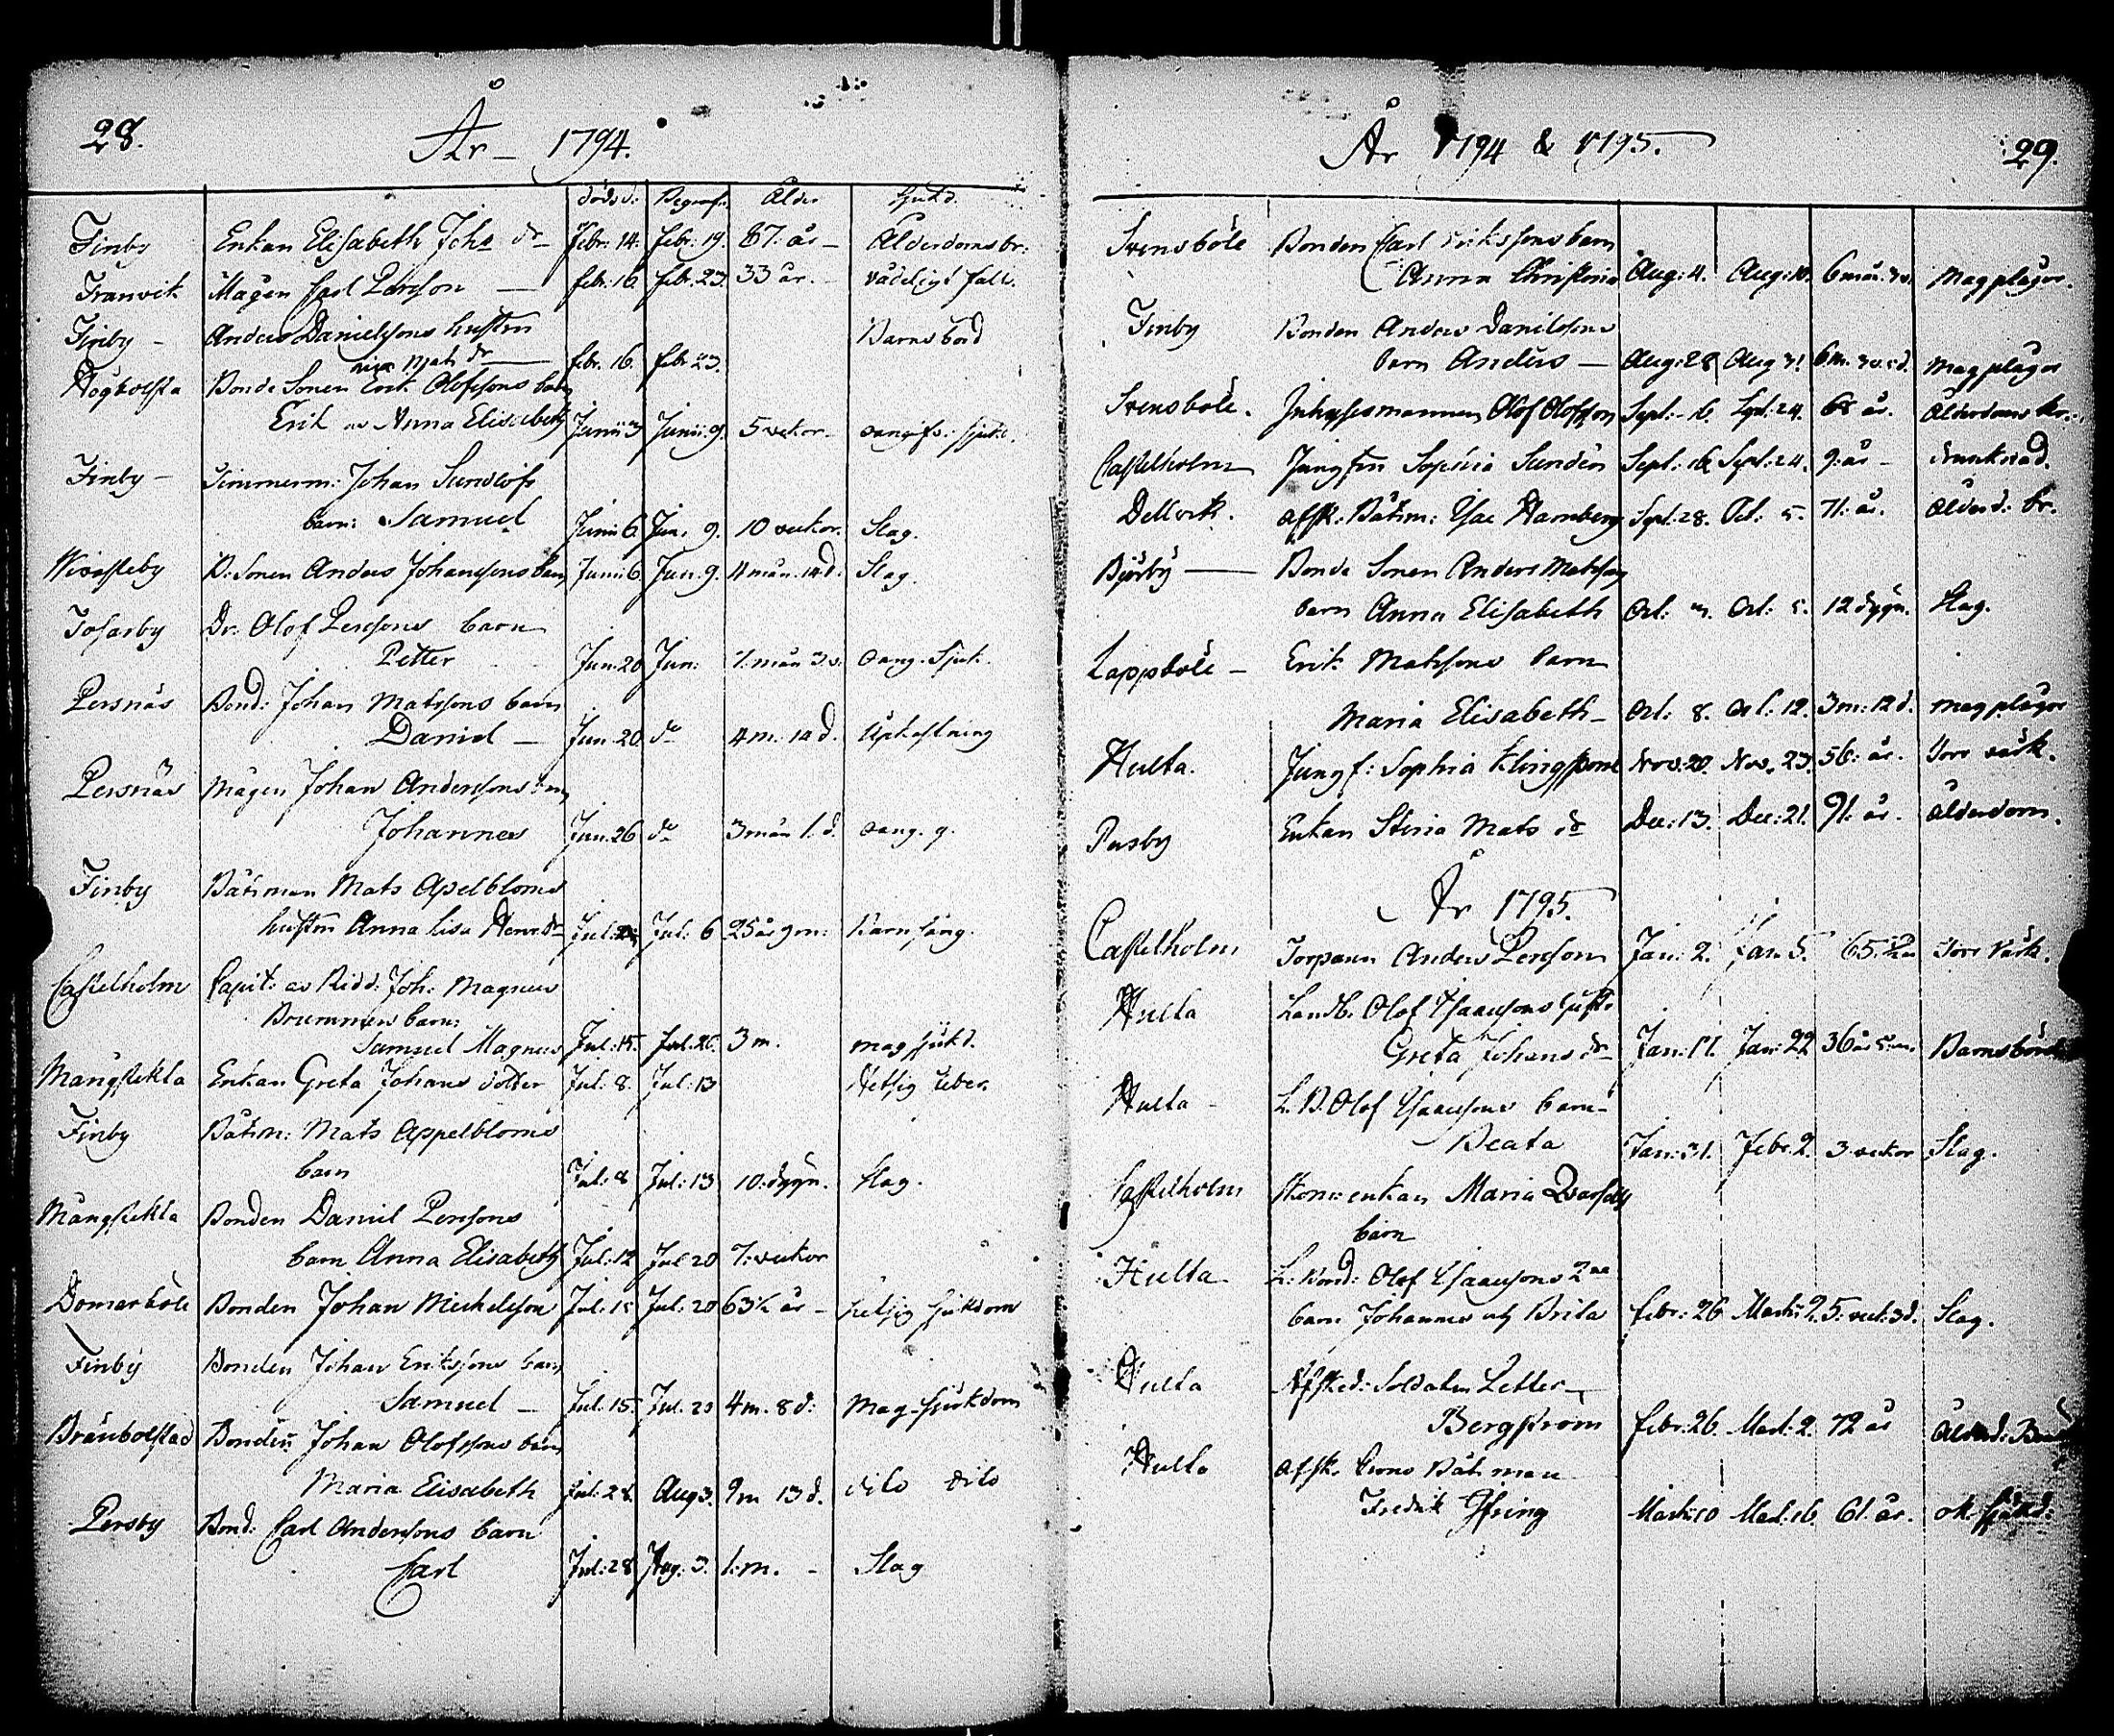 28.
År - 1794.
dödsd: Begrafn. Ålder Sjukd.
Finby Enkan Elisabeth Johs dr Febr: 14. Febr: 19. 87. år - Ålderdomsbr:
Tranvik Mågen Carl Persson — febr. 16. febr. 23. 33 år. - vådeligt fall.
Finby - Anders Danielssons hustru Barnsbörd
Mats dr — febr. 16. febr 23.
Högbolsta Bonde Sonen Erik Olofssons barn
Erik o. Anna Elisabeth Junii 3 Junii: 9. 5 vekor
Finby - Timmerm: Johan Sundlöfs
barn: Samuel Junii 6. Jun. 9. 10 vekor. Slag.
Wivasteby B: Sonen Anders Johanssons barn Junii 6. Jun. 9. 4 mån. 14 d. Slag.
Tosarby Dr: Olof Perssons barn
Petter Jun: 20 Jun: 7. mån 3. v. oang. Sjuk.
Persnäs Bond: Johan Matssons barn
Daniel — Jun. 20. do 4 m. 14 d. Upkastning
Persnäs Mågen Johan Anderssons barn
Johannes Jun. 26 do 3 mån 1. d. oang. g.
Finby Båtsman Mats Apelbloms
hustru Anna Lisa Henr. dr Jul: Jul: 6 25 år 9 m: Barnsäng.
Castelholm Capit: av Ridd: Joh: Magnus
Brummers barn:
Samuel Magnus Jul: 15. Jul. 26. 3 m. magsjukd.
Mångstekta Enkan Greta Johans dotter Jul: 8. Jul: 13 Hetsig feber.
Finby Båtsm: Mats Appelbloms
barn Jul: 8 Jul: 13 10. dygn. Slag.
Mångstekta Bonden Daniel Perssons
barn Anna Elisabeth Jul: 12 Jul 20 7. vekor
Domarböle Bonden Johan Michelsson Jul: 15 Jul: 20 63½ år - hetsig sjukdom
Finby Bonden Johan Erikssons barn
Samuel — Jul: 15. Jul. 20 4 m. 8 d: Mag-sjukdom
Bränbolstad Bonden Johan Olofssons barn
Maria Elisabeth Jul: 28. Aug 3. 9 m 13 d. dito dito
Persby Bond: Carl Anderssons barn
Carl Jul: 28 Aug: 3. 1: m. - Slag
År 1794 & 1795.
29.
Svensböle Bonden Carl Erikssons barn
Anna Christina Aug: 4. Aug: 10. 6 mån. 3 v. Magplågor.
Finby Bonden Anders Danielssons
barn Anders — Aug: 28 Aug 31 6 m. 3 v. d. Magplågor
Svensböle. Inhysesmannen Olof Olofsson Sept: 16. Sept: 24. 68 år. Ålderdoms br.
Castelholm Jungfru Sophia Sundén Sept: 16. Sept: 24. 9: år - drunknad.
Delvik. Afsk: Båtsm: Isac Hamberg Sept: 28. Oct: 5. 71. år. Ålderd: br.
Björby — Bonde Sonen Anders Matssons
barn Anna Elisabeth Oct: Oct: 5. 12 dygn. Slag.
Lappböle - Erik Matssons barn
Maria Elisabeth - Oct: 8. Oct: 12. 3 m: 12 d. magplågor
Hulta. Jungf: Sophia Klingspone Nov: 20. Nov. 23. 56: år. Torr värk.
Pusby Enkan Stina Mats dr Dec: 13. Dec: 21. 91. år. Ålderdom.
År 1795.
Castelholm Torparen Anders Persson Jan: 2. Jan: 5. 65. Torr värk.
Hulta Landb. Olof Isacssons hustr.
Greta Johans dr Jan: 17. Jan: 22 36 år 5. m. Barnsbörd
Hulta - L. B. Olof Isacssons barn
Beata Jan: 31. Febr. 2. 3. vekor Slag.
Castelholm enkan Maria
barn
Hulta L: Bond: Olof Isacssons 2ne
barn Johannes och Brita Febr: 26 Martii 2. 5: vek: 3 d. Slag.
Hulta Afsked: Soldaten Petter
Bergström Febr: 26. Mart: 2. 72 år
Hulta Afsk. Båtsman
Fredrik Martii: 10 Mart. 16. 61. år.